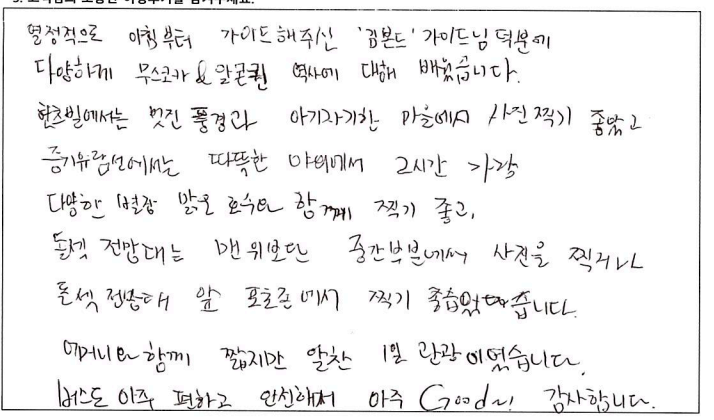 열정적으로 아침부터 가이드해주신 '김본드' 가이드님 덕분에
다양하게 무스코카 & 알곤퀸 역사에 대해 배웠습니다.
헌츠빌에서는 멋진 풍경과 아기자기한 마을에서 사진찍기 좋았고
증기유람선에서는 따뜻한 야외에서 2시간 가량
다양한 별장 맑은 호수와 함께 찍기 좋고,
돌셋 전망대는 맨 위보단 중간부분에서 사진을 찍거나
돌셋 전망대 앞 포토존에서 찍기 좋습니다.
어머니와 함께 짧지만 알찬 1일 관광이였습니다.
버스도 아주 편하고 안전해서 아주 Good~! 감사합니다.